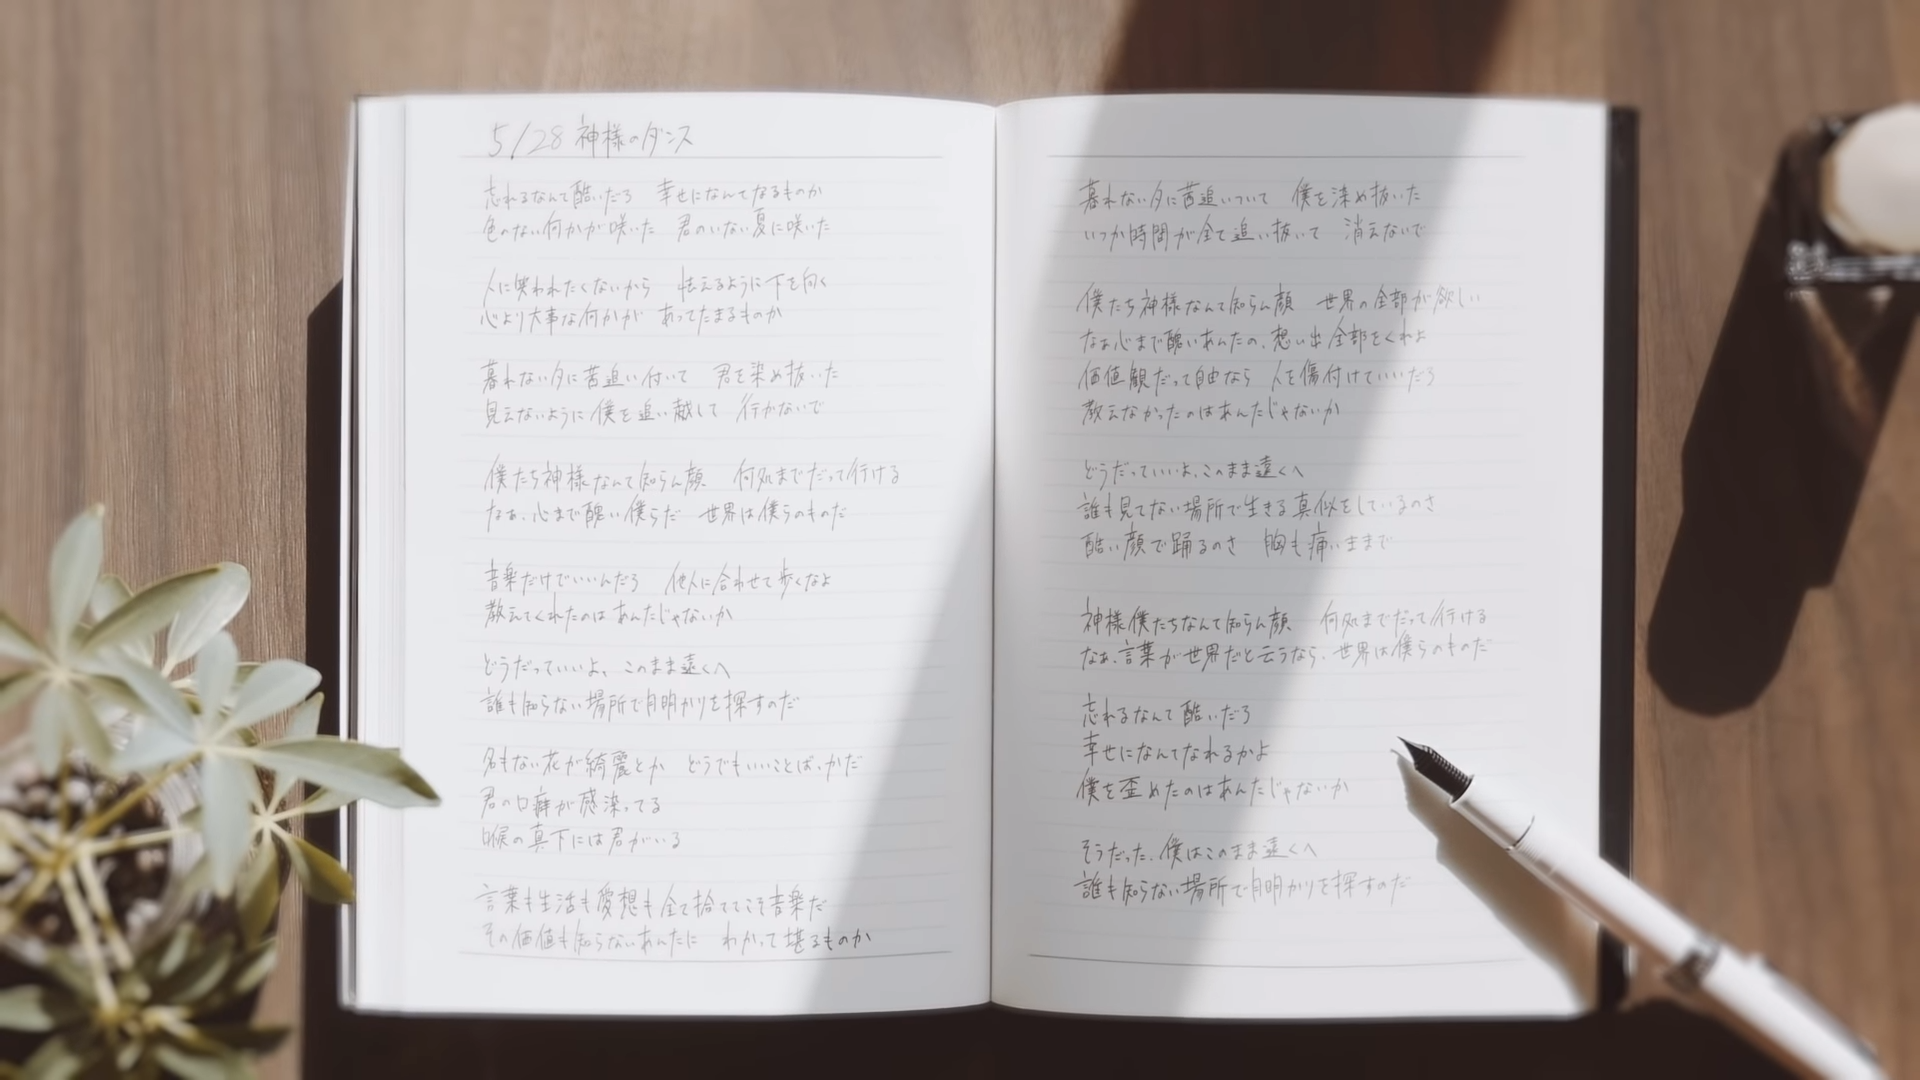 5/28 神様のダンス
忘れるなんて酷いだろ 幸せになんてなるものか
色のない何かが咲いた 君のいない夏に咲いた
人に笑われたくないから 怯えるように下を向く
心より大事な何かが あってたまるものか
暮れない夕に苦追い付いて 君を染め抜いた
見えないように僕を追い越して 行かないで
僕たち神様なんて知らん顔 何処までだって行ける
なぁ、心まで醜い僕らだ 世界は僕らのものだ
音楽だけでいいんだろ 他人に合わせて歩くなよ
教えてくれたのはあんたじゃないか
どうだっていいよ、このまま遠くへ
誰も知らない場所で月明かりを探すのだ
名もない花が綺麗とか どうでもいいことばっかだ
君の口癖が感染ってる
喉の真下には君がいる
言葉も生活も愛想も全て捨ててこそ音楽だ
その価値も知らないあんたに わかって堪るものか
暮れない夕に苦追いついて 僕を染め抜いた
いつか時間が全て追い抜いて 消えないで
僕たち神様なんて知らん顔 世界の全部が欲しい
なぁ心まで醜いあんたの、想い出全部をくれよ
価値観だって自由なら 人を傷付けていいだろ
教えなかったのはあんたじゃないか
どうだっていいよ、このまま遠くへ
誰も見てない場所で生きる真似をしているのさ
酷い顔で踊るのさ 胸も痛いままで
神様僕たちなんて知らん顔 何処までだって行ける
なぁ、言葉が世界だと云うなら、世界は僕らのものだ
忘れるなんて酷いだろ
幸せになんてなれるかよ
僕を歪めたのはあんたじゃないか
そうだった、僕はこのまま遠くへ
誰も知らない場所で月明かりを探すのだ